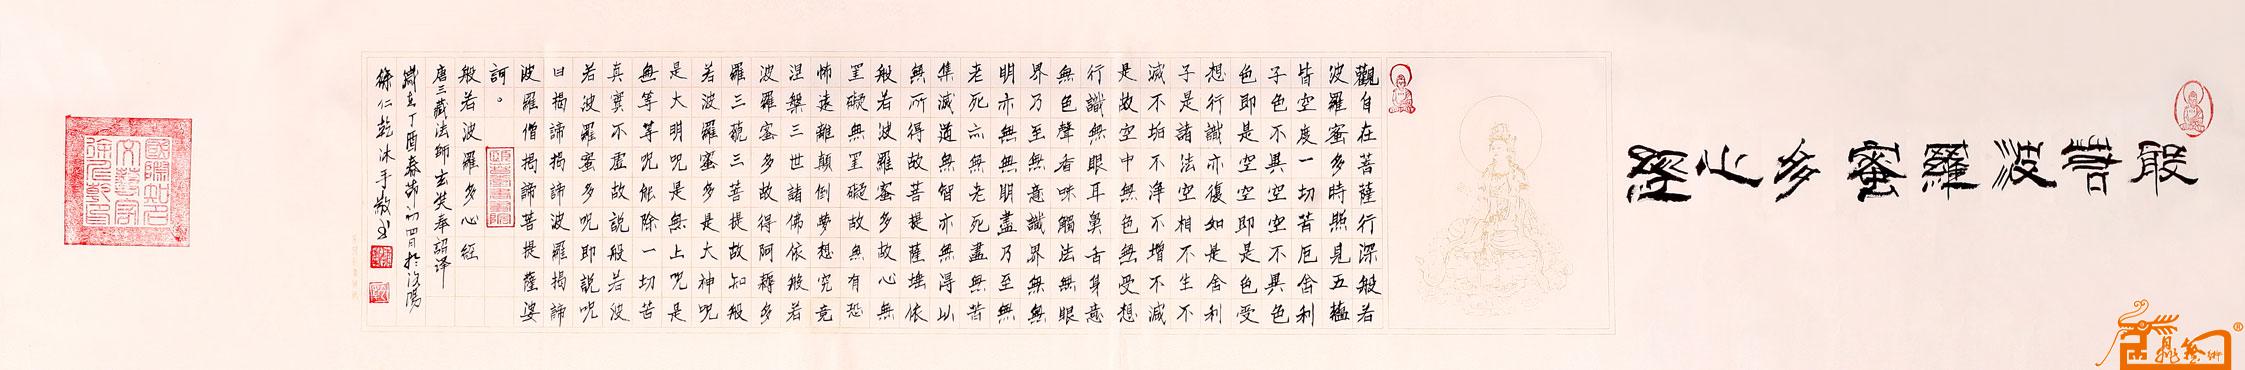 般若波羅蜜多心經
觀自在菩薩行深般若
波羅蜜多時照見五蘊
皆空度一切苦厄舍利
子色不異空空不異色
色即是空空即是色受
想行識亦復如是舍利
子是諸法空相不生不
滅不垢不淨不增不減
是故空中無色無受想
行識無眼耳鼻舌身意
無色聲香味觸法無眼
界乃至無意識界無無
明亦無無明盡乃至無
老死亦無老死盡無苦
集滅道無智亦無得以
無所得故菩提薩埵依
般若波羅蜜多故心無
罣礙無罣礙故無有恐
怖遠離顛倒夢想究竟
涅槃三世諸佛依般若
波羅蜜多故得阿耨多
羅三藐三菩提故知般
若波羅蜜多是大神呪
是大明呪是無上呪是
無等等呪能除一切苦
真實不虛故說般若波
若波羅蜜多呪即說呪
曰揭諦揭諦波羅揭諦
波羅僧揭諦菩提薩婆
訶。
般若波羅多心經
唐三藏法師玄奘奉詔译
歲在丁酉春節初四日於洛陽
徐仁乾沐手敬书
國際知名
文藝家
徐仁乾印